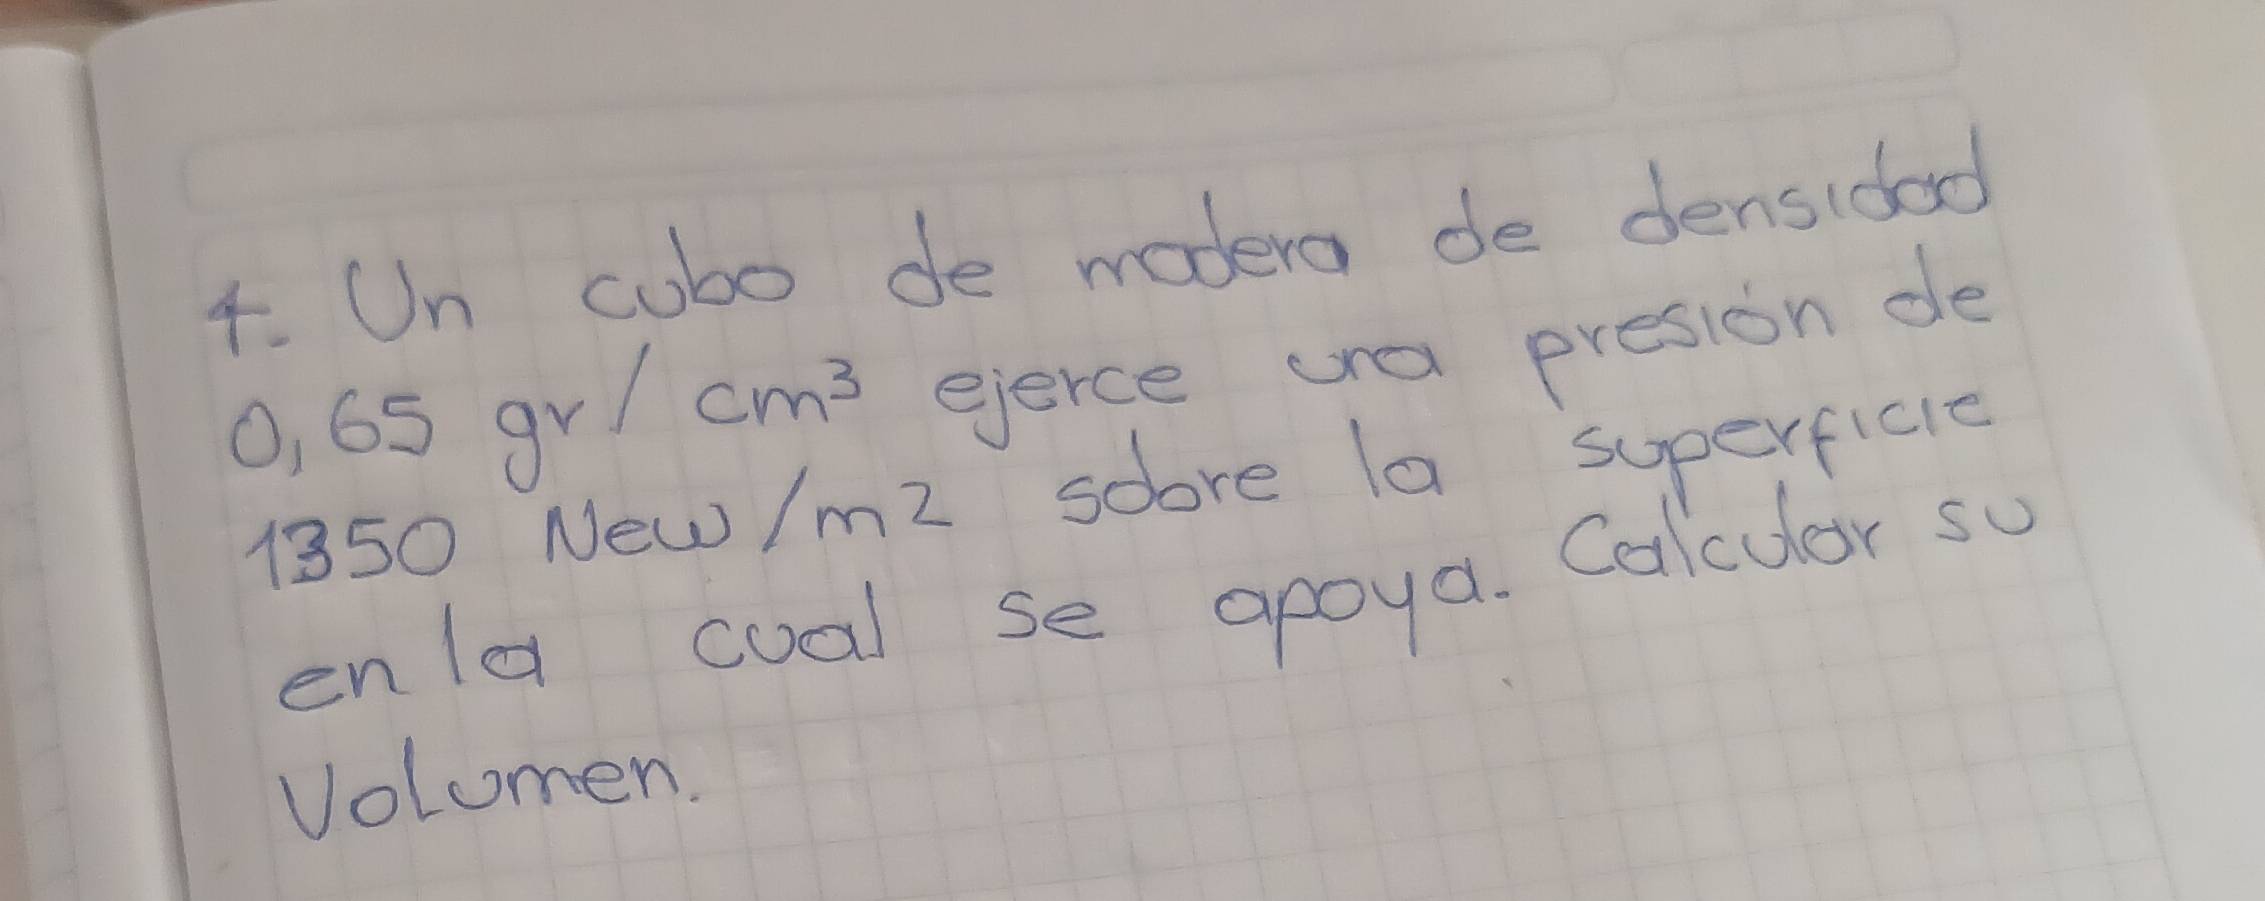 4. Un cubo de madera de densidad
0,65 gr/cm³ ejerce una presión de
1350 New/m2 sobre la superficie
en la cual se apoya. Calcular su
Volumen.